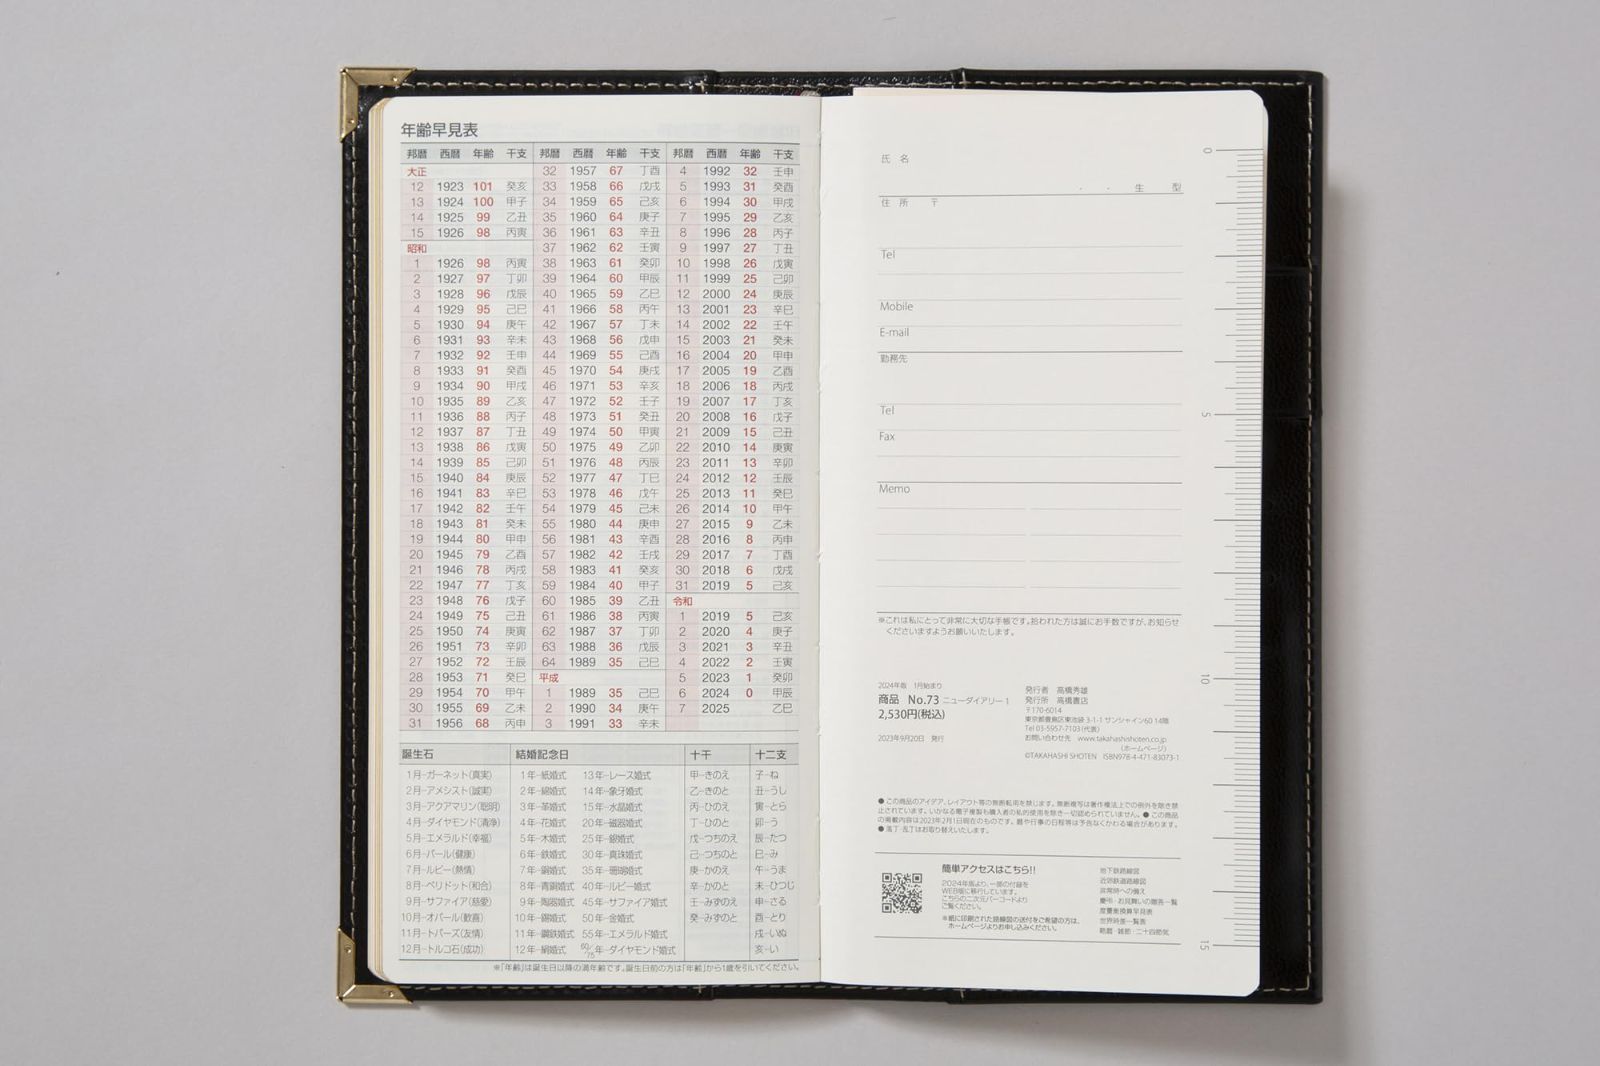 年齢早見表
邦暦 西暦 年齢 干支 邦暦 西暦 年齢 干支 邦暦 西暦 年齢 干支
大正 32 1957 67 丁酉 4 1992 32 壬申
12 1923 101 癸亥 33 1958 66 戊戌 5 1993 31 癸酉
13 1924 100 甲子 34 1959 65 己亥 6 1994 30 甲戌
14 1925 99 乙丑 35 1960 64 庚子 7 1995 29 乙亥
15 1926 98 丙寅 36 1961 63 辛丑 8 1996 28 丙子
昭和 37 1962 62 壬寅 9 1997 27 丁丑
1 1926 98 丙寅 38 1963 61 癸卯 10 1998 26 戊寅
2 1927 97 丁卯 39 1964 60 甲辰 11 1999 25 己卯
3 1928 96 戊辰 40 1965 59 乙巳 12 2000 24 庚辰
4 1929 95 己巳 41 1966 58 丙午 13 2001 23 辛巳
5 1930 94 庚午 42 1967 57 丁未 14 2002 22 壬午
6 1931 93 辛未 43 1968 56 戊申 15 2003 21 癸未
7 1932 92 壬申 44 1969 55 己酉 16 2004 20 甲申
8 1933 91 癸酉 45 1970 54 庚戌 17 2005 19 乙酉
9 1934 90 甲戌 46 1971 53 辛亥 18 2006 18 丙戌
10 1935 89 乙亥 47 1972 52 壬子 19 2007 17 丁亥
11 1936 88 丙子 48 1973 51 癸丑 20 2008 16 戊子
12 1937 87 丁丑 49 1974 50 甲寅 21 2009 15 己丑
13 1938 86 戊寅 50 1975 49 乙卯 22 2010 14 庚寅
14 1939 85 己卯 51 1976 48 丙辰 23 2011 13 辛卯
15 1940 84 庚辰 52 1977 47 丁巳 24 2012 12 壬辰
16 1941 83 辛巳 53 1978 46 戊午 25 2013 11 癸巳
17 1942 82 壬午 54 1979 45 己未 26 2014 10 甲午
18 1943 81 癸未 55 1980 44 庚申 27 2015 9 乙未
19 1944 80 甲申 56 1981 43 辛酉 28 2016 8 丙申
20 1945 79 乙酉 57 1982 42 壬戌 29 2017 7 丁酉
21 1946 78 丙戌 58 1983 41 癸亥 30 2018 6 戊戌
22 1947 77 丁亥 59 1984 40 甲子 31 2019 5 己亥
23 1948 76 戊子 60 1985 39 乙丑 令和
24 1949 75 己丑 61 1986 38 丙寅 1 2019 5 己亥
25 1950 74 庚寅 62 1987 37 丁卯 2 2020 4 庚子
26 1951 73 辛卯 63 1988 36 戊辰 3 2021 3 辛丑
27 1952 72 壬辰 64 1989 35 己巳 4 2022 2 壬寅
28 1953 71 癸巳 平成 5 2023 1 癸卯
29 1954 70 甲午 1 1989 35 己巳 6 2024 0 甲辰
30 1955 69 乙未 2 1990 34 庚午 7 2025 乙巳
31 1956 68 丙申 3 1991 33 辛未
誕生石 結婚記念日 十干 十二支
1月-ガーネット(真実) 1年-紙婚式 13年-レース婚式 甲-きのえ 子-ね
2月-アメシスト(誠実) 2年-綿婚式 14年-象牙婚式 乙-きのと 丑-うし
3月-アクアマリン(聡明) 3年-革婚式 15年-水晶婚式 丙-ひのえ 寅-とら
4月-ダイヤモンド(清浄) 4年-花婚式 20年-磁器婚式 丁-ひのと 卯-う
5月-エメラルド(幸福) 5年-木婚式 25年-銀婚式 戊-つちのえ 辰-たつ
6月-パール(健康) 6年-鉄婚式 30年-真珠婚式 己-つちのと 巳-み
7月-ルビー(熱情) 7年-銅婚式 35年-珊瑚婚式 庚-かのえ 午-うま
8月-ペリドット(和合) 8年-青銅婚式 40年-ルビー婚式 辛-かのと 未-ひつじ
9月-サファイア(慈愛) 9年-陶器婚式 45年-サファイア婚式 壬-みずのえ 申-さる
10月-オパール(歓喜) 10年-錫婚式 50年-金婚式 癸-みずのと 酉-とり
11月-トパーズ(友情) 11年-鋼鉄婚式 55年-エメラルド婚式 戌-いぬ
12月-トルコ石(成功) 12年-絹婚式 60/75年-ダイヤモンド婚式 亥-い
※「年齢」は誕生日以降の満年齢です。誕生日前の方は「年齢」から1歳を引いてください。
氏名
・ ・ 生 型
住所 〒
Tel
Mobile
E-mail
勤務先
Tel
Fax
Memo
※これは私にとって非常に大切な手帳です。拾われた方は誠にお手数ですが、お知らせ
くださいますようお願いいたします。
2024年版 1月始まり
商品 No.73 ニューダイアリー 1
2,530円(税込)
2023年9月20日 発行
発行者 高橋秀雄
発行所 高橋書店
〒170-6014
東京都豊島区東池袋 3-1-1 サンシャイン60 14階
Tel 03-5957-7103(代表)
お問い合わせ先 www.takahashishoten.co.jp
(ホームページ)
©TAKAHASHI SHOTEN ISBN978-4-471-83073-1
● この商品のアイデア、レイアウト等の無断転用を禁じます。無断複写は著作権法上での例外を除き禁
止されています。いかなる電子複製も購入者の私的使用を除き一切認められていません。● この商品
の掲載内容は2023年2月1日現在のものです。暦や行事の日程等は予告なくかわる場合があります。
● 落丁・乱丁はお取り替えいたします。
簡単アクセスはこちら!!
2024年版より、一部の付録を
WEB版に移行しています。
こちらの二次元バーコードより
ご覧ください。
※紙に印刷された路線図の送付をご希望の方は、
ホームページよりお申し込みください。
地下鉄路線図
近郊鉄道路線図
非常時への備え
慶弔・お見舞いの贈答一覧
度量衡換算早見表
世界時差一覧表
略暦・雑節・二十四節気
0
5
10
15